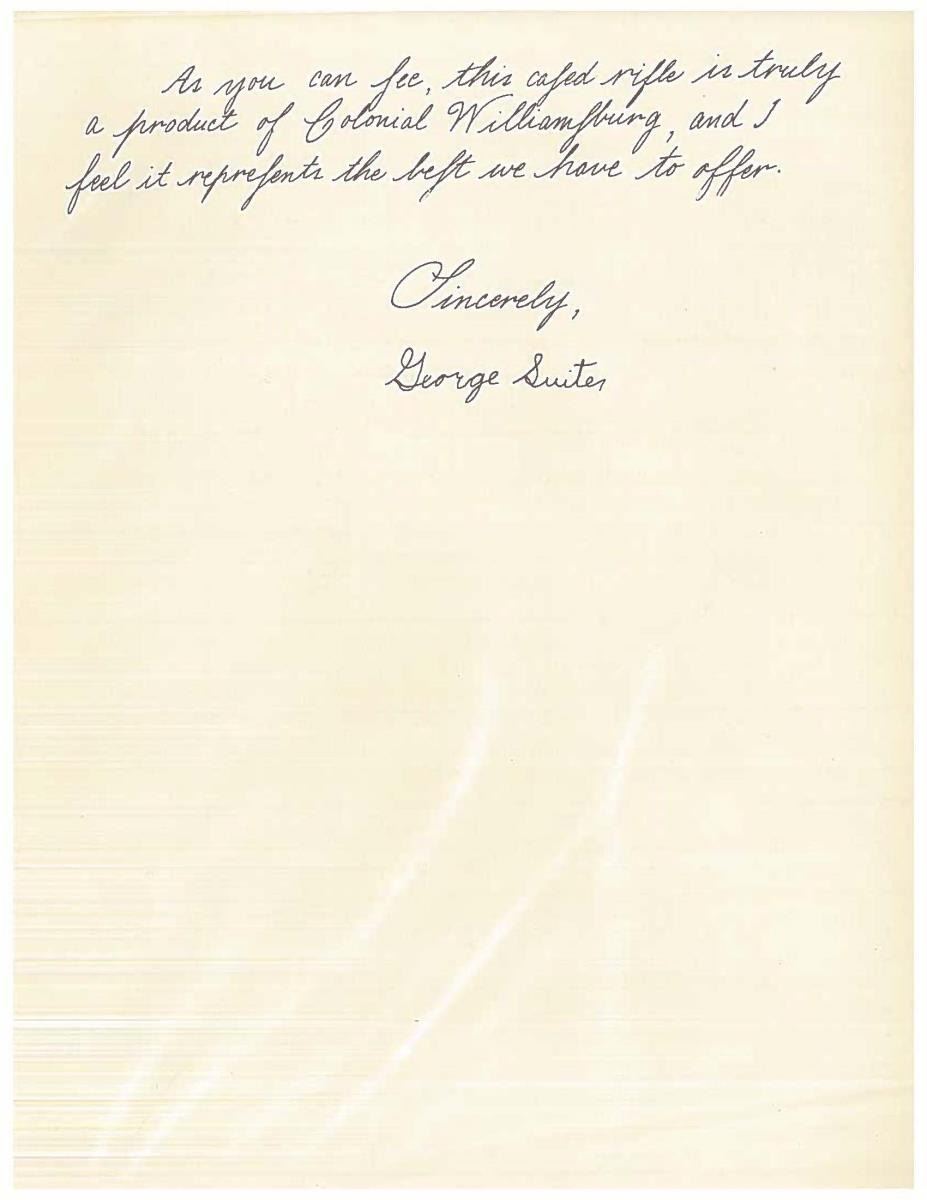 As you can ſee, this caſed rifle is truly
a product of Colonial Williamſburg, and I
feel it repreſents the beſt we have to offer.
Sincerely,
George Suiter